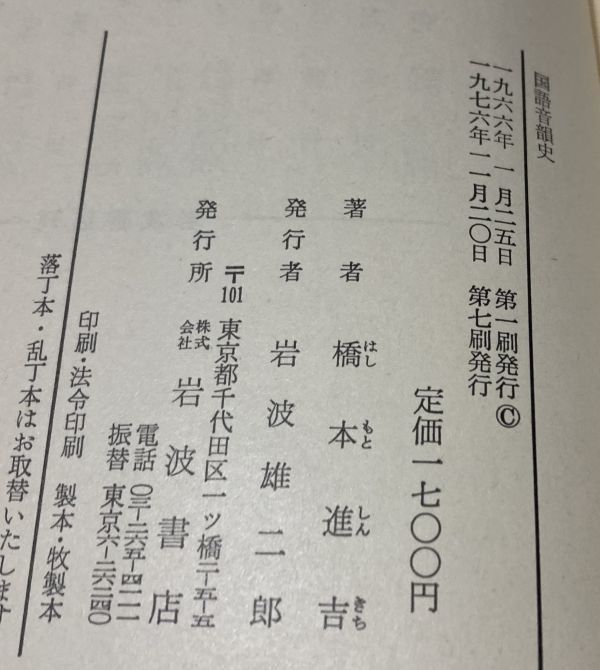 国語音韻史
一九六六年一月二五日 第一刷発行©
一九七六年一一月二〇日 第七刷発行
定価一七〇〇円
著者 橋本進吉
はし もと しん きち
発行者 岩波雄二郎
〒101 東京都千代田区一ツ橋二-五-五
発行所 株式会社 岩波書店
電話 〇三-二六五-四一一一
振替 東京六-二六二四〇
印刷・法令印刷 製本・牧製本
落丁本・乱丁本はお取替いたします